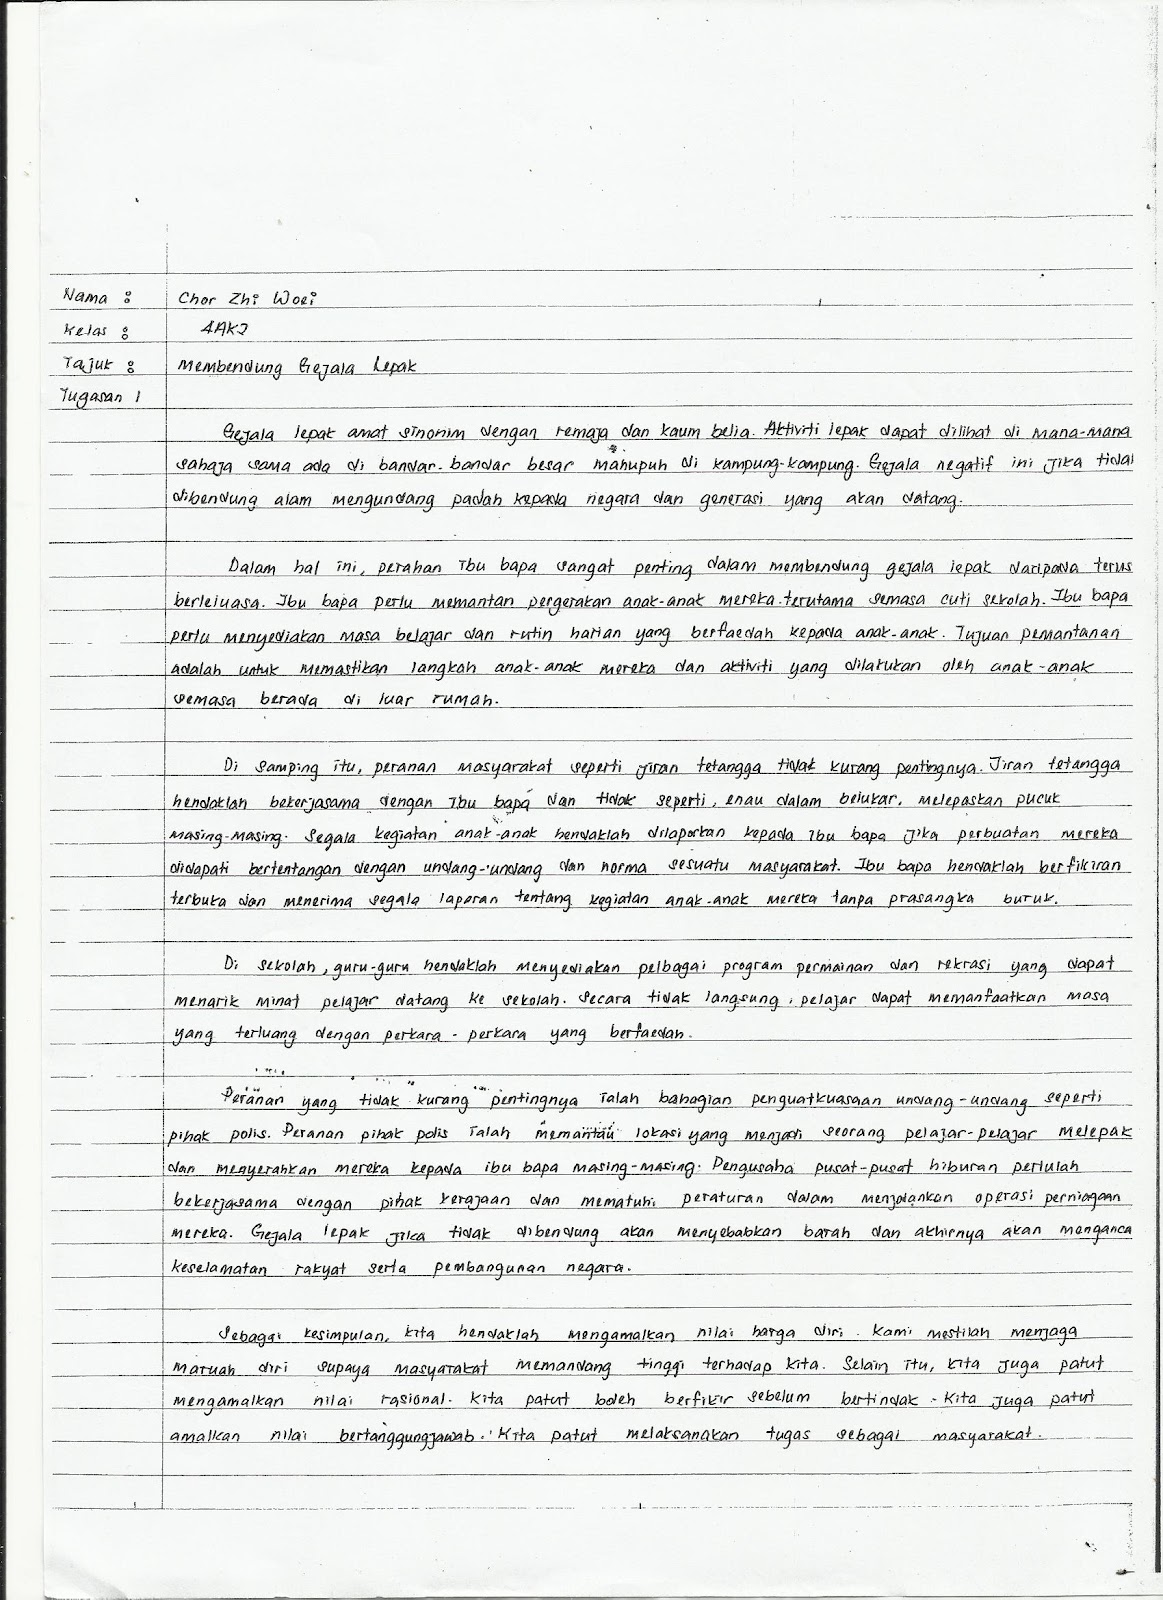 Nama : Chor Zhi Woei
Kelas : 4AK2
Tajuk : Membendung Gejala Lepak
Tugasan 1
Gejala lepak amat sinonim dengan remaja dan kaum belia. Aktiviti lepak dapat dilihat di mana-mana
sahaja sama ada di bandar-bandar besar mahupuh di kampung-kampung. Gejala negatif ini jika tidak
dibendung alam mengundang padah kepada negara dan generasi yang akan datang.
Dalam hal ini, perahan ibu bapa sangat penting dalam membendung gejala lepak daripada terus
berleluasa. Ibu bapa perlu memantan pergerakan anak-anak mereka terutama semasa cuti sekolah. Ibu bapa
perlu menyediakan masa belajar dan rutin harian yang berfaedah kepada anak-anak. Tujuan pemantanan
adalah untuk memastikan langkah anak-anak mereka dan aktiviti yang dilakukan oleh anak-anak
semasa berada di luar rumah.
Di samping itu, peranan masyarakat seperti jiran tetangga tidak kurang pentingnya. Jiran tetangga
hendaklah bekerjasama dengan ibu bapa dan tidak seperti, enau dalam belukar, melepaskan pucuk
masing-masing. Segala kegiatan anak-anak hendaklah dilaporkan kepada ibu bapa jika perbuatan mereka
didapati bertentangan dengan undang-undang dan norma sesuatu masyarakat. Ibu bapa hendaklah berfikiran
terbuka dan menerima segala laporan tentang kegiatan anak-anak mereka tanpa prasangka buruk.
Di sekolah, guru-guru hendaklah menyediakan pelbagai program permainan dan rekrasi yang dapat
menarik minat pelajar datang ke sekolah. Secara tidak langsung, pelajar dapat memanfaatkan masa
yang terluang dengan perkara-perkara yang berfaedah.
Peranan yang tidak kurang pentingnya ialah bahagian penguatkuasaan undang-undang seperti
pihak polis. Peranan pihak polis ialah memantau lokasi yang menjadi seorang pelajar-pelajar melepak
dan menyerahkan mereka kepada ibu bapa masing-masing. Pengusaha pusat-pusat hiburan perlulah
bekerjasama dengan pihak kerajaan dan mematuhi peraturan dalam menjalankan operasi perniagaan
mereka. Gejala lepak jika tidak dibendung akan menyebabkan barah dan akhirnya akan menganca
keselamatan rakyat serta pembangunan negara.
Sebagai kesimpulan, kita hendaklah mengamalkan nilai harga diri. Kami mestilah menjaga
maruah diri supaya masyarakat memandang tinggi terhadap kita. Selain itu, kita juga patut
mengamalkan nilai rasional. Kita patut boleh berfikir sebelum bertindak. Kita juga patut
amalkan nilai bertanggungjawab. Kita patut melaksanakan tugas sebagai masyarakat.